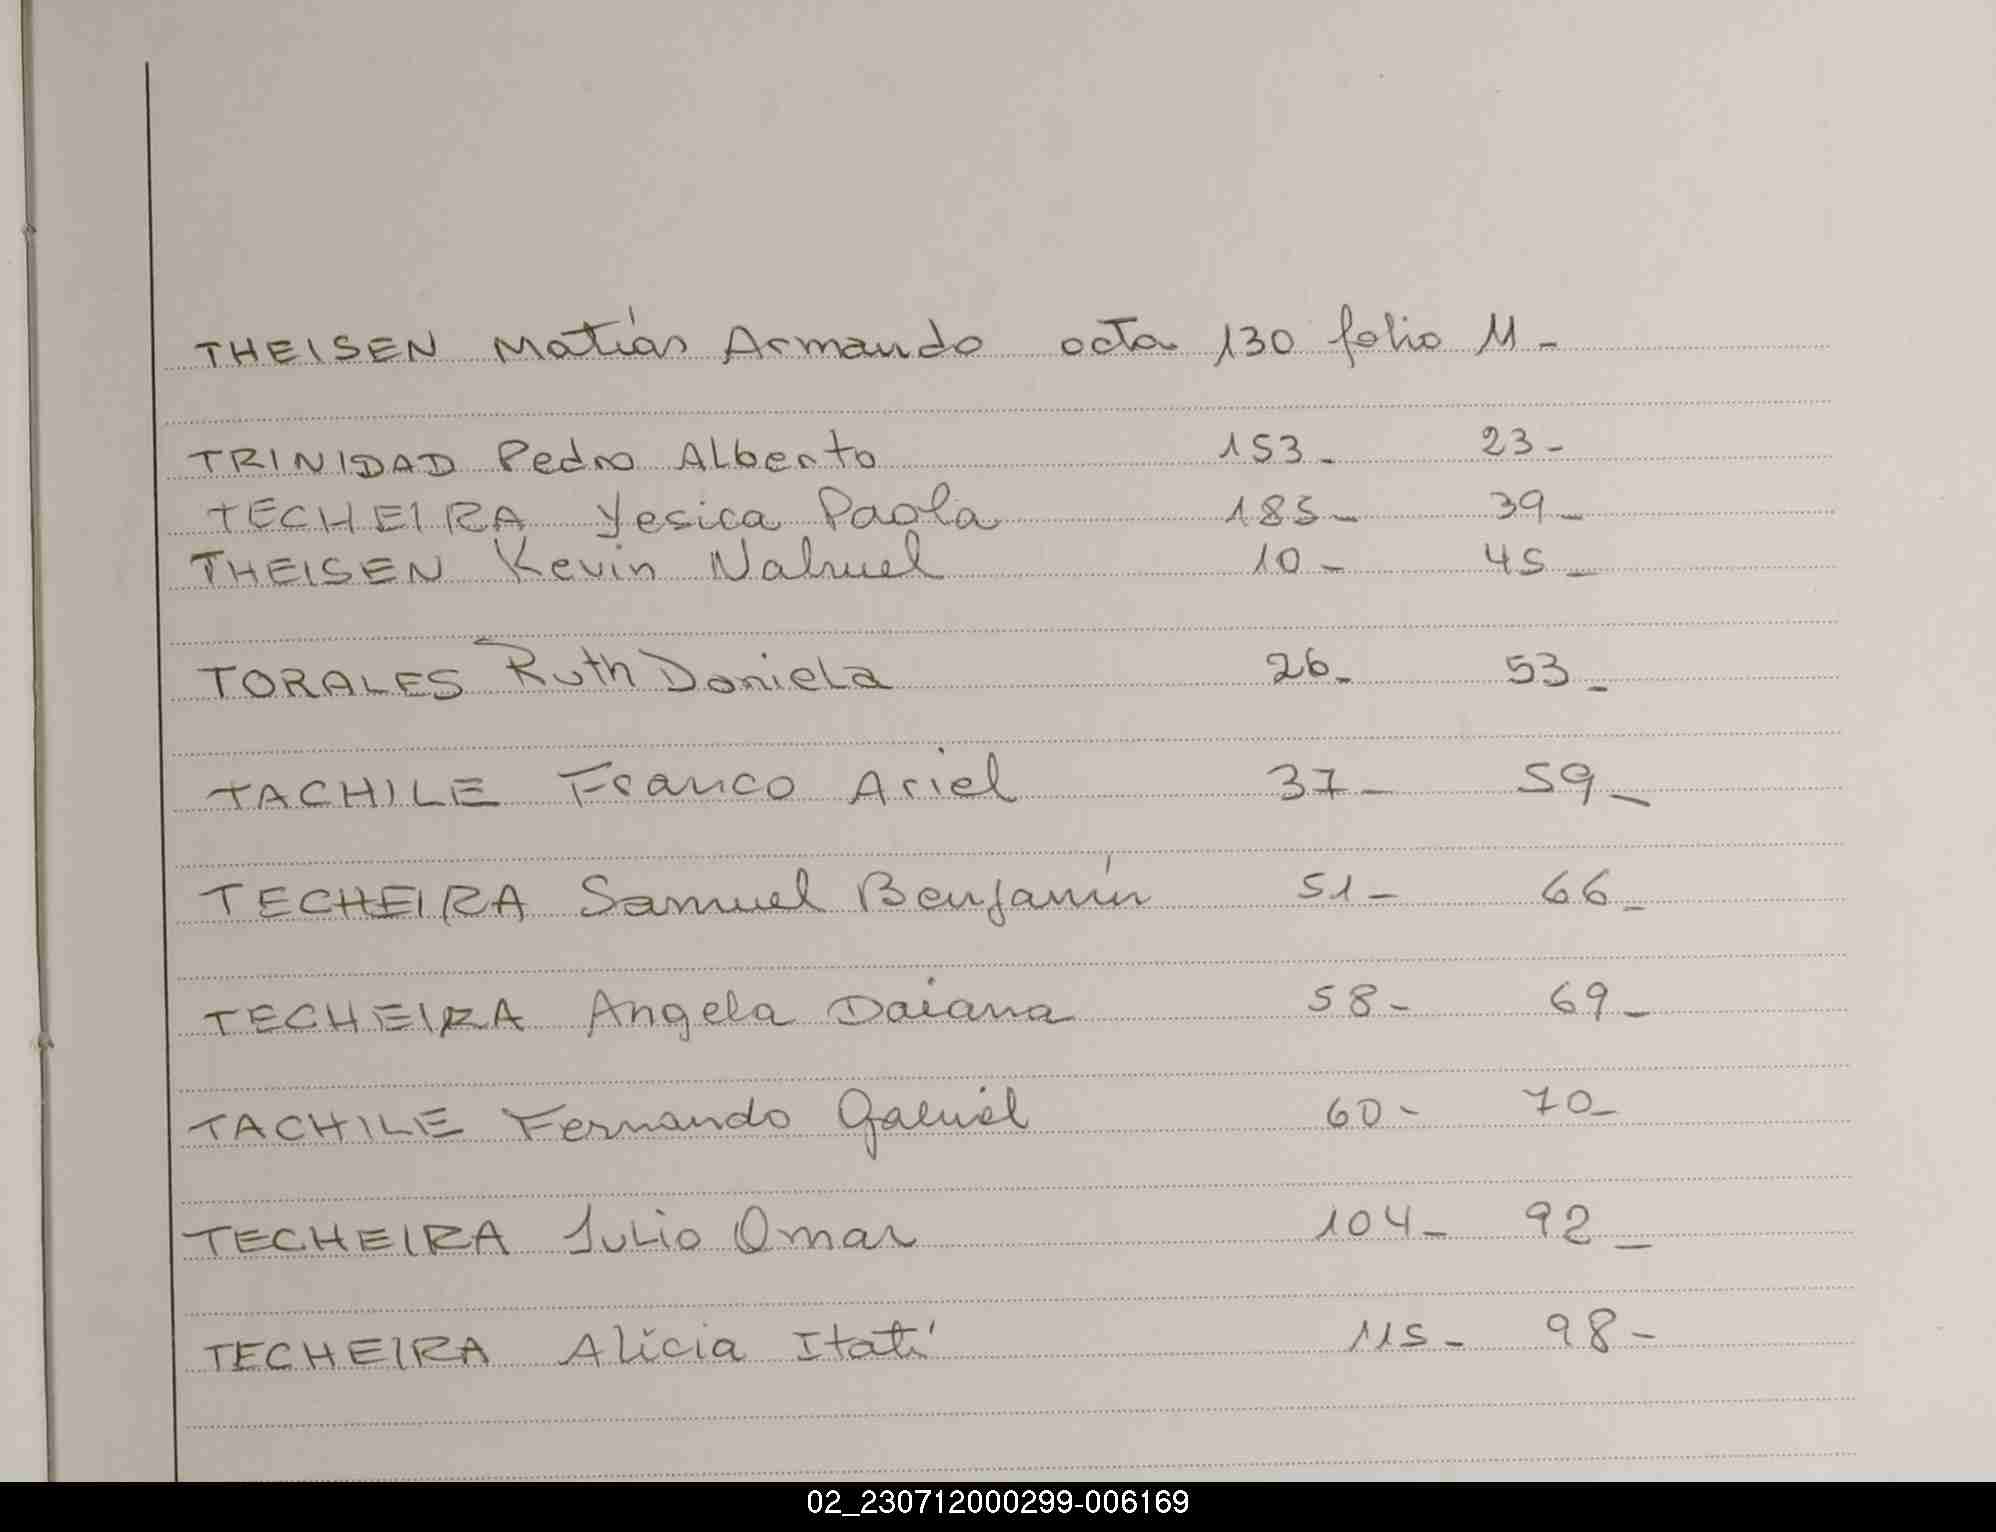 THEISEN Matías Armando acta 130 folio 11-
TRINIDAD Pedro Alberto 153- 23-
TECHEIRA Yesica Paola 185- 39-
THEISEN Kevin Nahuel 10- 45-
TORALES Ruth Daniela 26- 53-
TACHILE Franco Ariel 37- 59-
TECHEIRA Samuel Benjamín 51- 66-
TECHEIRA Angela Daiana 58- 69-
TACHILE Fernando Gabriel 60- 70-
TECHEIRA Julio Omar 104- 92-
TECHEIRA Alicia Itatí 115- 98-
02_230712000299-006169